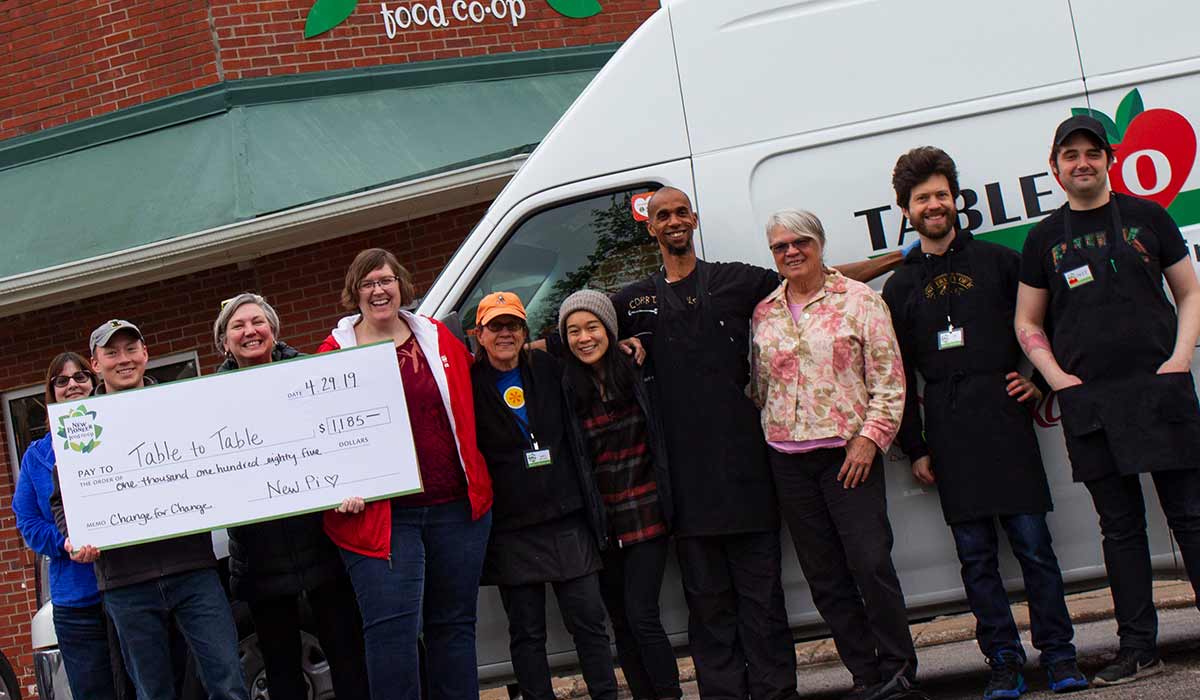 food co·op
TABLE to
DATE 4.29.19
NEW PIONEER
food co·op
PAY TO THE ORDER OF Table to Table $ 1,185—
one thousand one hundred eighty five DOLLARS
New Pi ♡
MEMO Change for Change